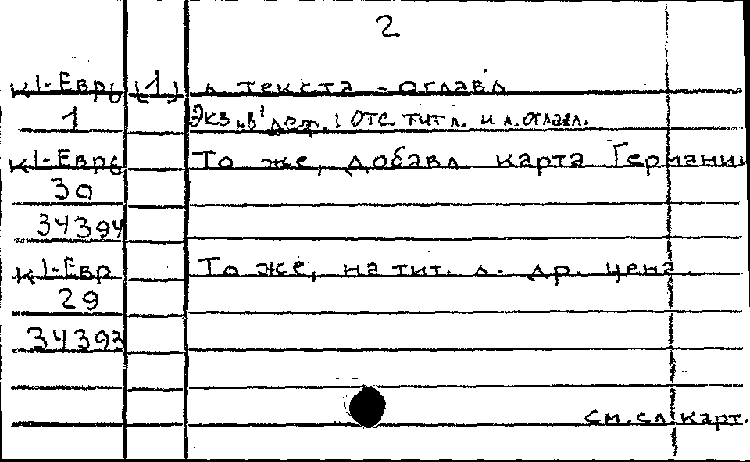 2
К1-Евр6 [1] л. текста - оглавл
1 Экз. "в" деф.: отс. тит л. и л. оглавл.
К1-Евр6 То же, добавл карта Германии
30
34394
К1-Евр То же, на тит. л. др. цена.
29
34393
см. сл. карт.